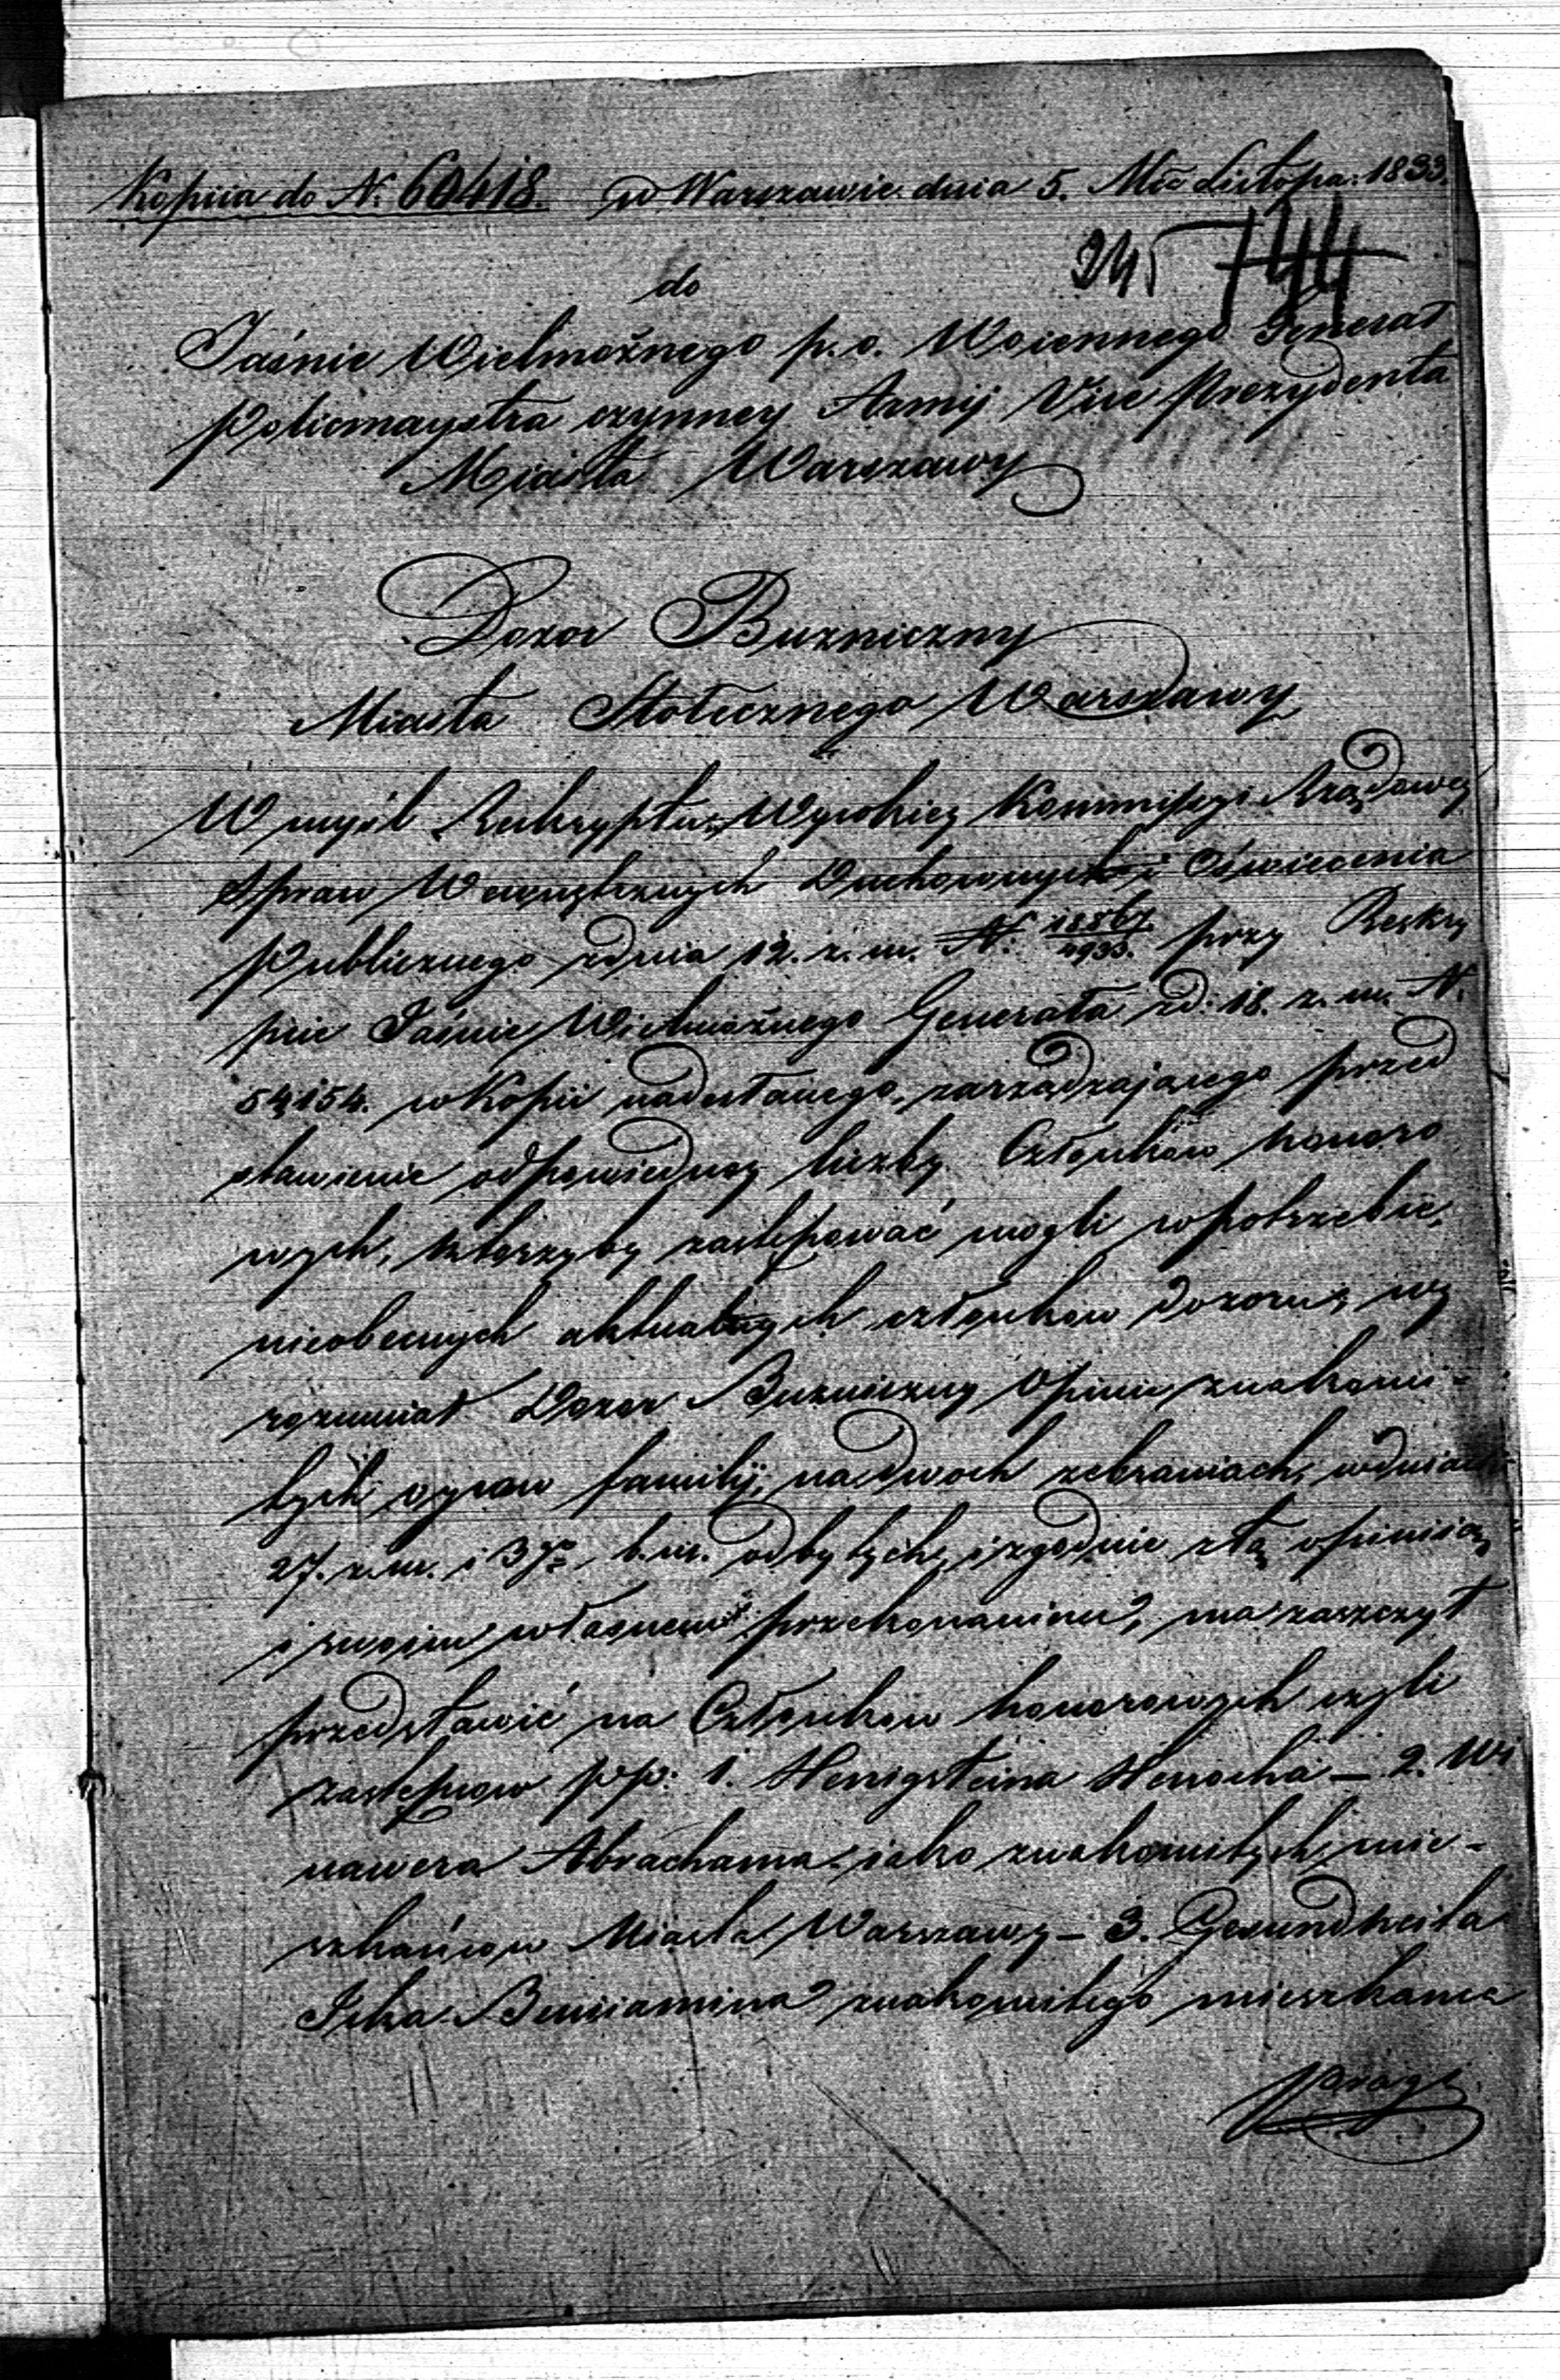 Kopiia do N. 60418. w Warszawie dnia 5. Mca Listopa: 1833.
245 744
do
Jaśnie Wielmożnego p. o. Woiennego Generał
Policmaystra czynney Armij Vice Prezydenta
Miasta Warszawy
Dozor Bużniczny
Miasta Stołecznego Warszawy
W myśl Reskryptu Wysokiey Kommissyi Rządowey
Spraw Wewnętrznych Duchownych i Oświecenia
Publicznego zdnia 12. z. m. N. 18567/4933. przy Reskry
pcie Jaśnie Wielmożnego Generała zd: 18. z. m. N.
54154. w Kopii nadesłanego, zarządzaiącego przed
stawienie odpowiedney liczby Członków honoro
wych, którzyby zastępować mogli w potrzebie,
nieobecnych aktualnych członkow Dozoru, wy
rozumiał Dozor Bużniczny Opinię znakomi-
tych oycow familij, na dwoch zebraniach, wdniach
27. z. m. i 3go b. m. odbytych, i zgodnie z tą opiniią
i swoim własnem przekonaniem, ma zaszczyt
przedstawić na Członkow honorowych czyli
zastępcow pp: 1. Henigsteina Henocha – 2. Wi
nawera Abrachama iako znakomitych mie-
szkańcow Miasta Warszawy – 3. Gesundheita
Icka Beniamina znakomitego mieszkanca
Pragi